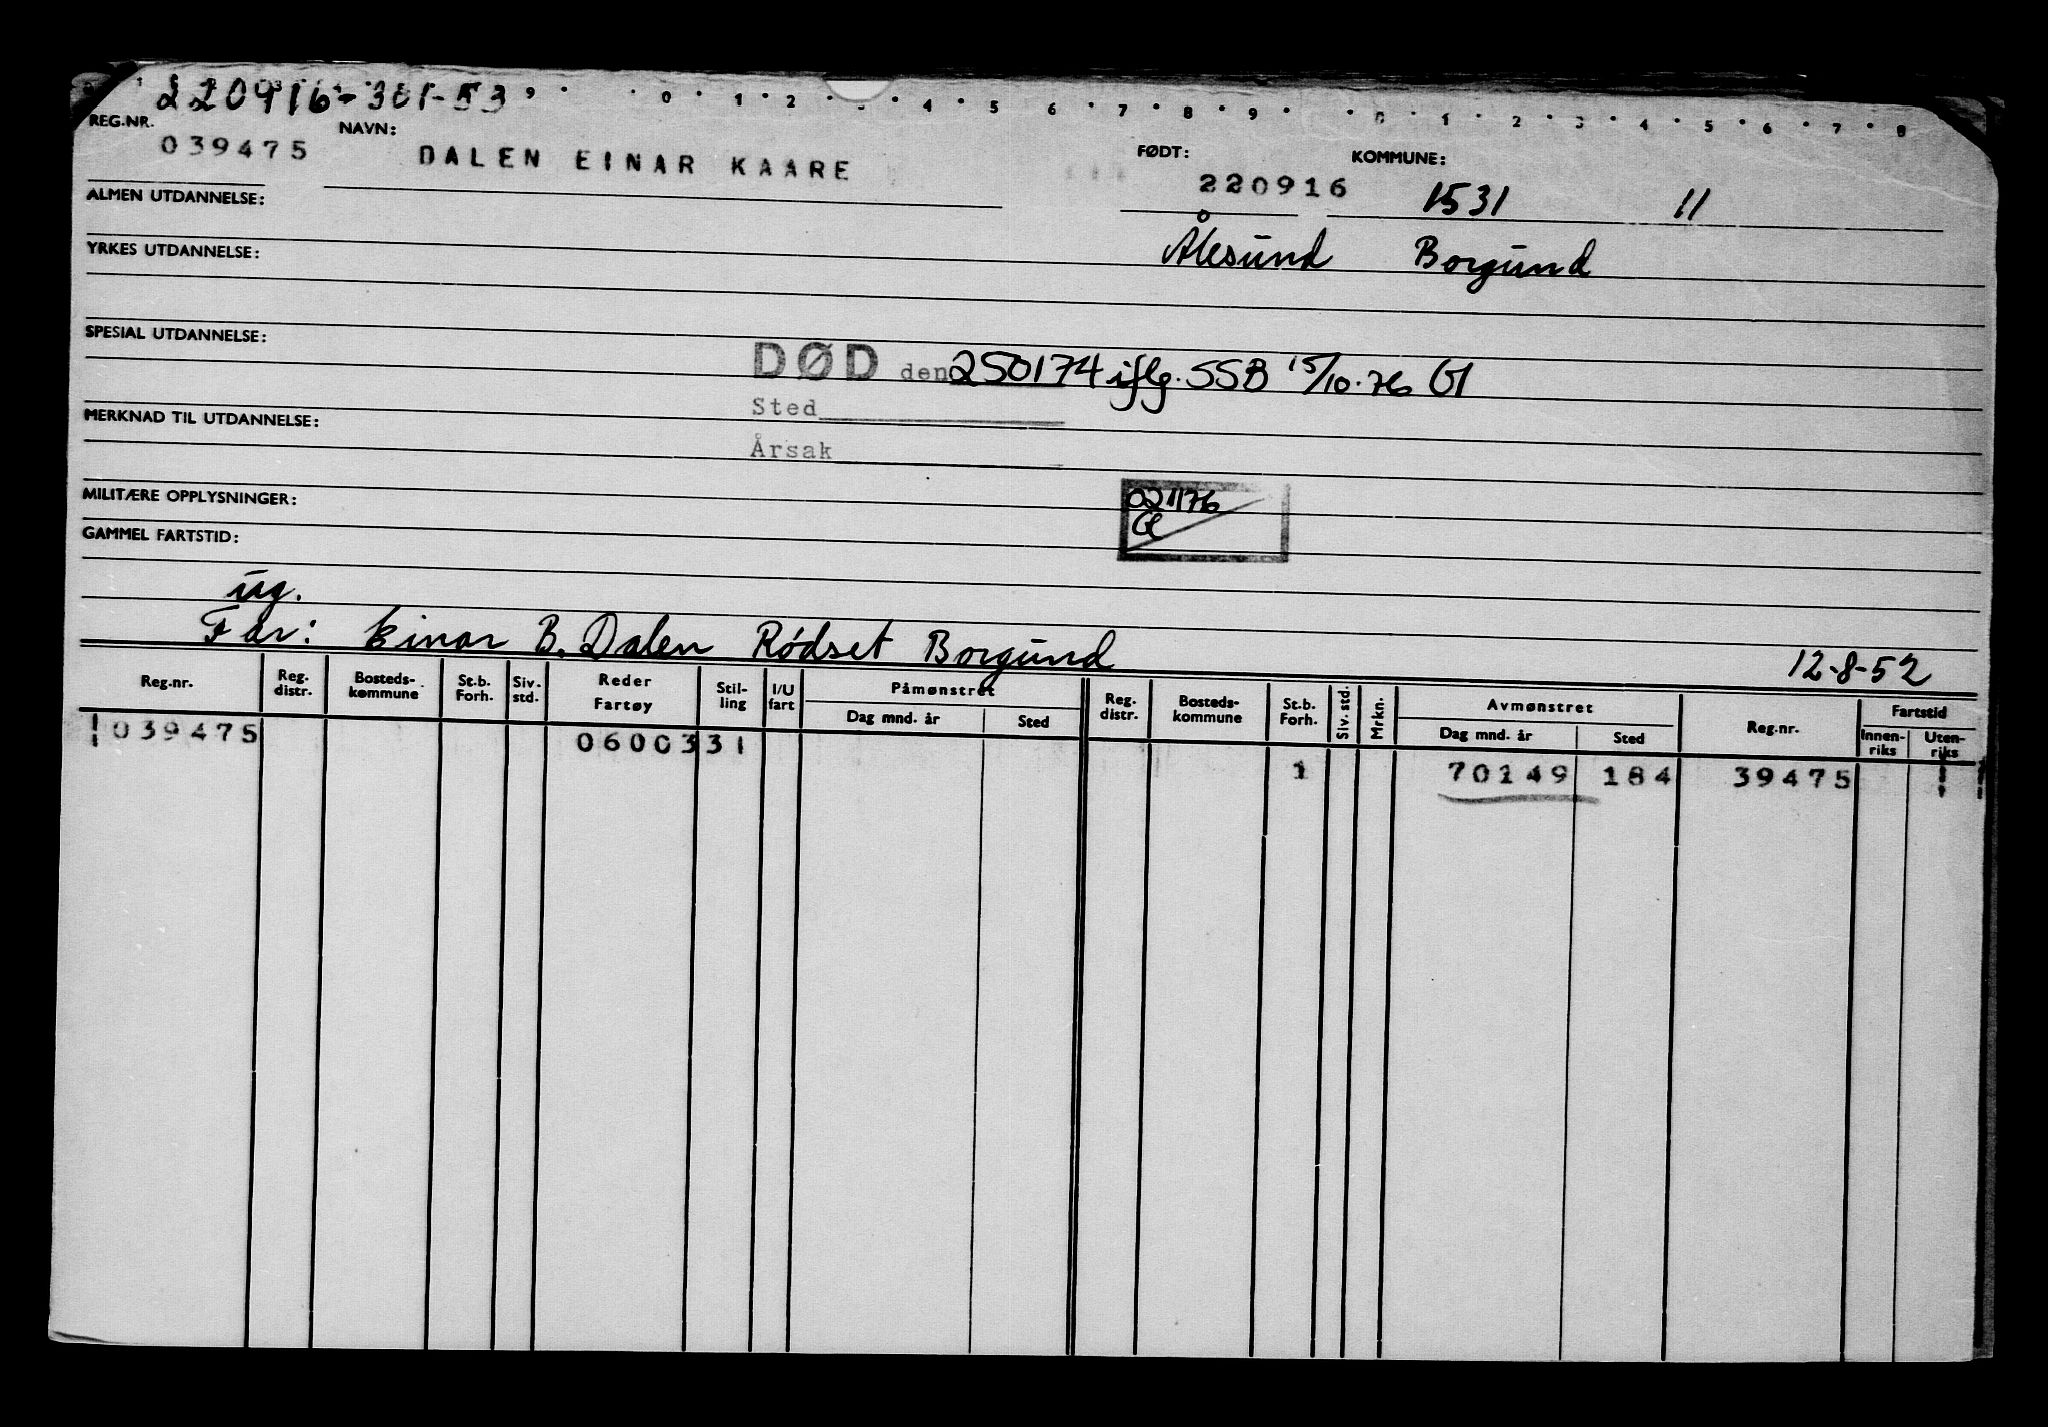 220916-301-53
9 . . 0 . 1 . 2 . . 4 . 5 6 . 7 . 8 . 9 . . 0 . 1 . 2 . 3 . 4 . 5 . 6 . 7 . 8
REG.NR. NAVN: FØDT: KOMMUNE:
039475 DALEN EINAR KAARE 220916 1531 11
ALMEN UTDANNELSE:
Ålesund Borgund
YRKES UTDANNELSE:
SPESIAL UTDANNELSE:
DØD den 250174 iflg. SSB 15/10.76 Gl
Sted
MERKNAD TIL UTDANNELSE:
Årsak
MILITÆRE OPPLYSNINGER:
021176
Gl
GAMMEL FARTSTID:
ug.
Far: Einar B. Dalen Rødset Borgund
12-8-52
Reg.nr. Reg. distr. Bosteds- kommune St.b. Forh. Siv. std. Reder Fartøy Stil- ling I/U fart Påmønstret Dag mnd. år Sted Reg. distr. Bosteds- kommune St.b. Forh. Siv. std. Mrkn. Avmønstret Dag mnd. år Sted Reg.nr. Fartstid Innen- riks Uten- riks
039475 0600331 1 70149 184 39475